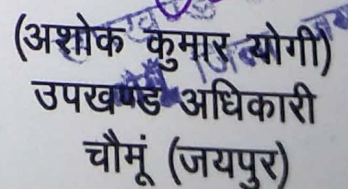 (अशोक कुमार योगी)
उपखण्ड अधिकारी
चौमूं (जयपुर)